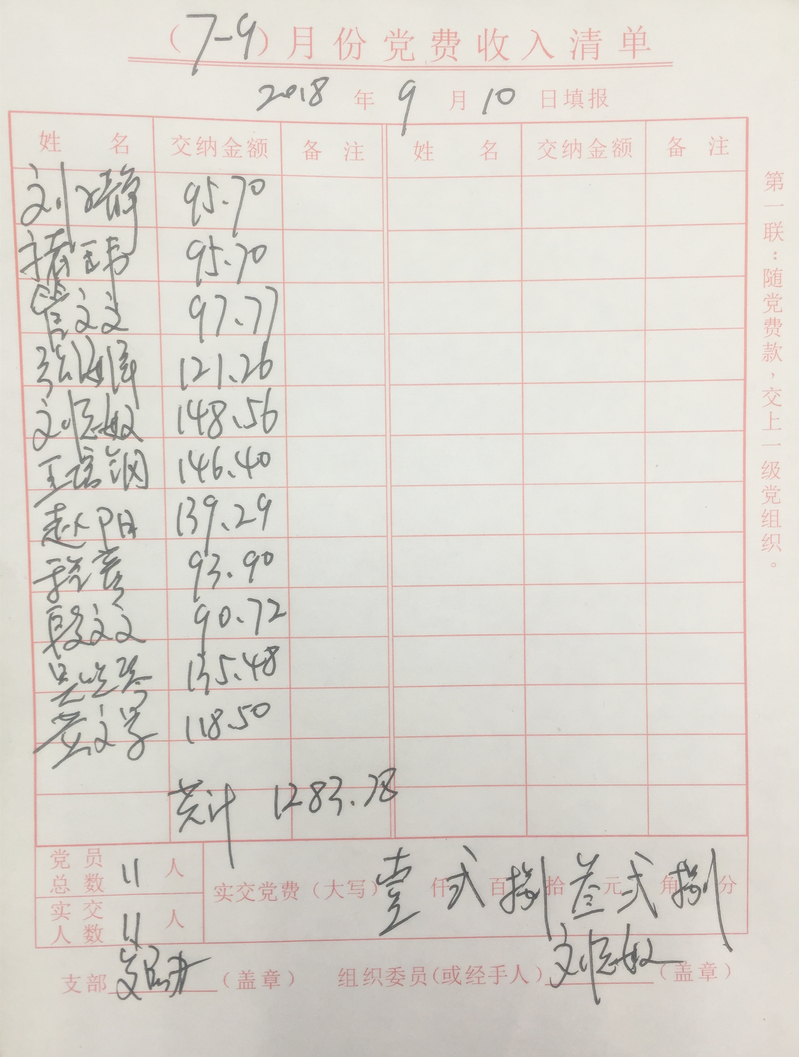 (7-9)月份党费收入清单
2018 年 9 月 10 日填报
姓 名 交纳金额 备 注 姓 名 交纳金额 备 注
95.70
95.70
管文文 97.77
121.26
刘志敏 148.56
王培钢 146.40
赵阳 139.29
93.90
段文文 90.72
135.48
118.50
共计 1283.28
党员总数 11 人
实交人数 11 人
实交党费(大写) 壹仟弍百捌拾叁元弍角捌分
支部 (盖章) 组织委员(或经手人) 刘志敏 (盖章)
第一联:随党费款,交上一级党组织。